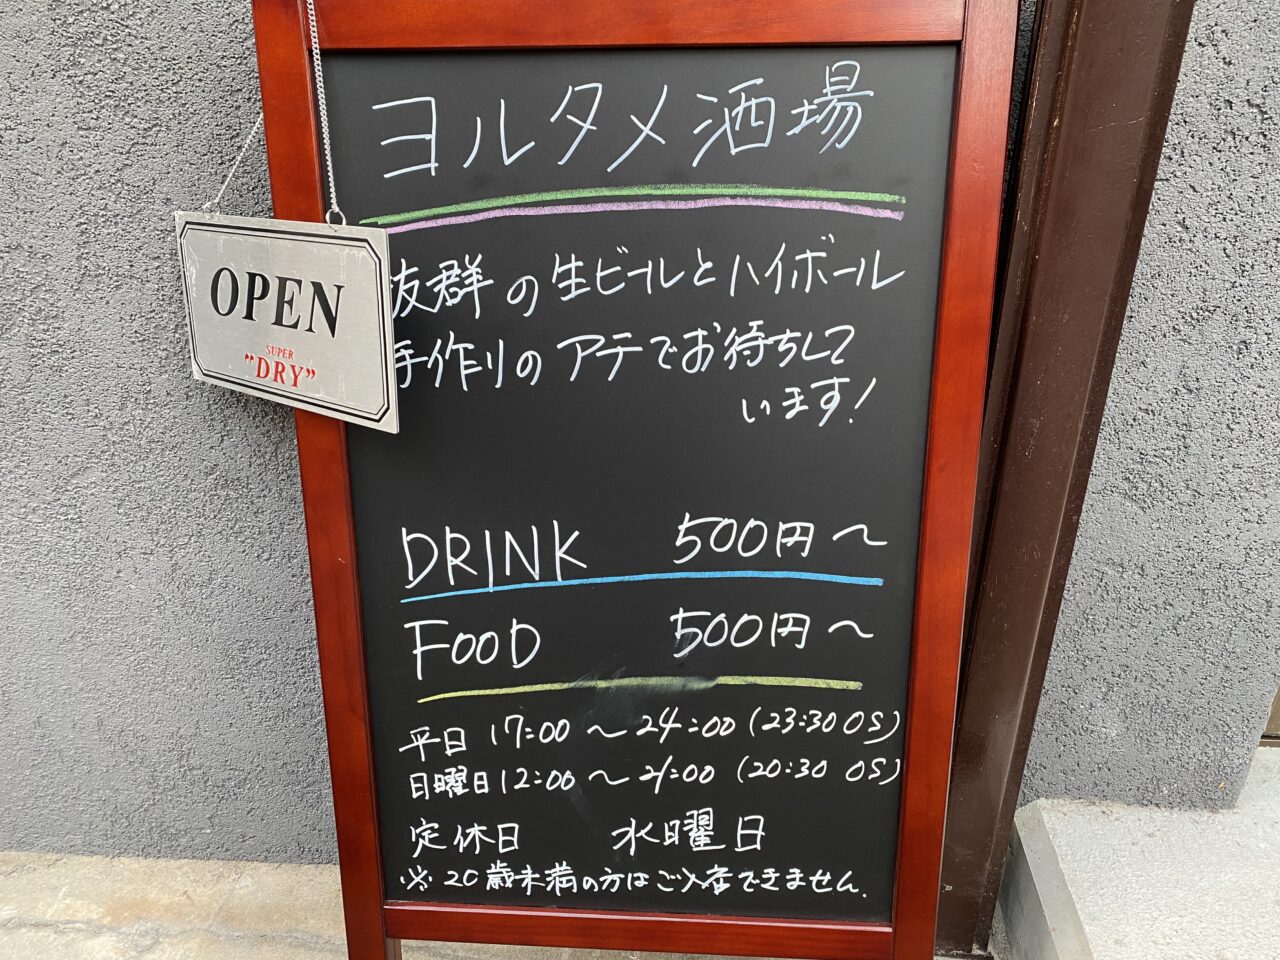 ヨルタメ酒場
OPEN
SUPER
"DRY"
抜群の生ビールとハイボール
手作りのアテでお待ちして
います!
DRINK 500円〜
FOOD 500円〜
平日 17:00〜24:00 (23:30 OS)
日曜日 12:00〜21:00 (20:30 OS)
定休日 水曜日
※20歳未満の方はご入店できません.